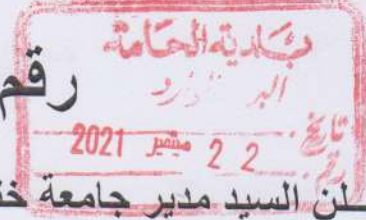 بلدية الحامة
رقم
البر
تاريخ 22 سبتمبر 2021
رقم
لن السيد مدير جامعة خن